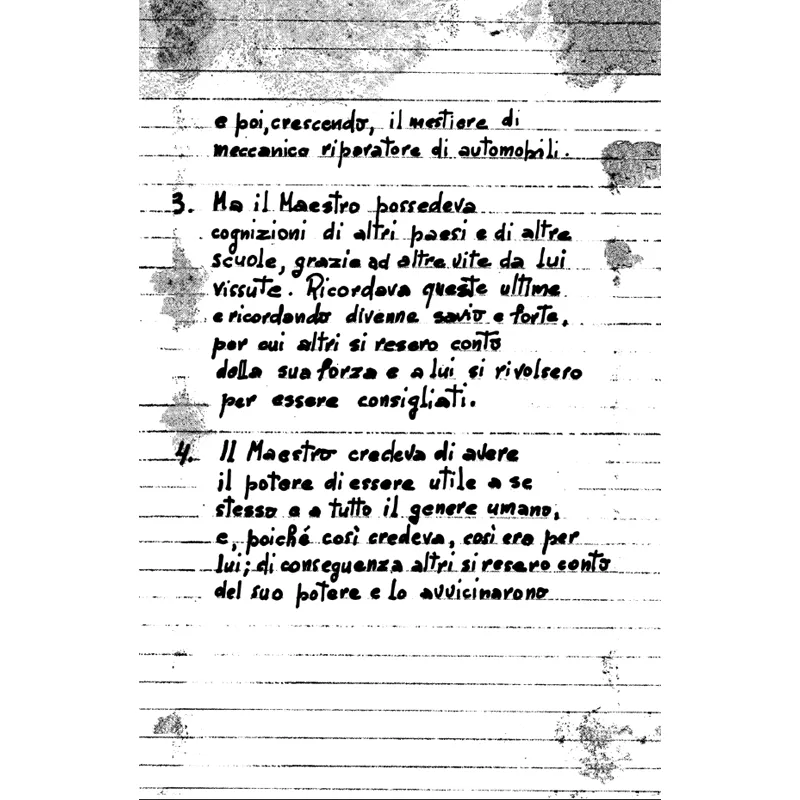 e poi, crescendo, il mestiere di
meccanico riparatore di automobili.
3. Ma il Maestro possedeva
cognizioni di altri paesi e di altre
scuole, grazie ad altre vite da lui
vissute. Ricordava queste ultime
e ricordando divenne savio e forte,
per cui altri si resero conto
della sua forza e a lui si rivolsero
per essere consigliati.
4. Il Maestro credeva di avere
il potere di essere utile a se
stesso e a tutto il genere umano,
e, poiché così credeva, così era per
lui; di conseguenza altri si resero conto
del suo potere e lo avvicinarono